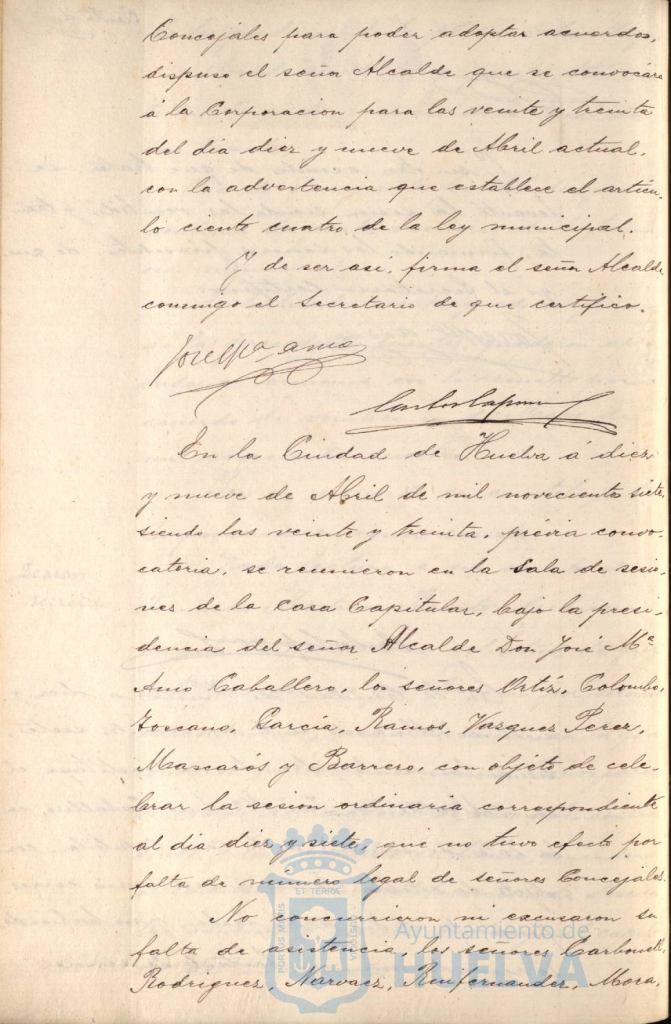 Concejales para poder adoptar acuerdos,
dispuso el señor Alcalde que se convocára
á la Corporacion para las veinte y treinta
del dia diez y nueve de Abril actual,
con la advertencia que establece el artícu-
lo ciento cuatro de la ley municipal.
Y de ser asi, firma el señor Alcalde
conmigo el Secretario de que certifico.
José Mª Amo
En la Ciudad de Huelva á diez
y nueve de Abril de mil novecientos siete,
siendo las veinte y treinta, prévia convo-
catoria, se reunieron en la sala de sesio-
nes de la Casa Capitular, bajo la presi-
dencia del señor Alcalde Don José Mª
Amo Caballero, los señores Ortíz, Colombo,
Toscano, García, Ramos, Vazquez Perez,
Mascarós y Barrero, con objeto de cele-
brar la sesion ordinaria correspondiente
al dia diez y siete, que no tuvo efecto por
falta de número legal de señores Concejales.
No concurrieron ni excusaron su
falta de asistencia, los señores Carbonell,
Rodriguez, Narvaez, Mora,
PORTUS MARIS
ET TERRE
CUSTODIA
Ayuntamiento de
HUELVA